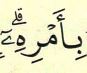 بِأَمْرِهِۦٓۗ